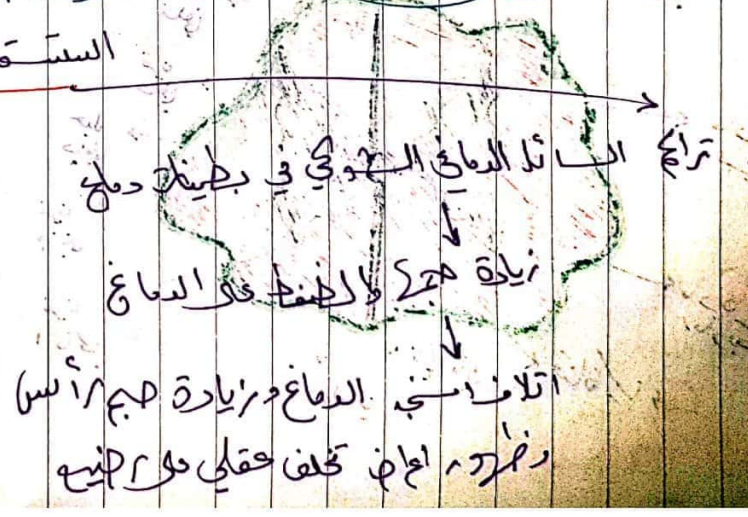 الستسق
تراكم السائل الدماغي الشوكي في بطينات دماغ
زيادة حجمها والضغط على الدماغ
اتلاف انسجة الدماغ وزيادة حجم رأس
وظهور اعراض تخلف عقلي على